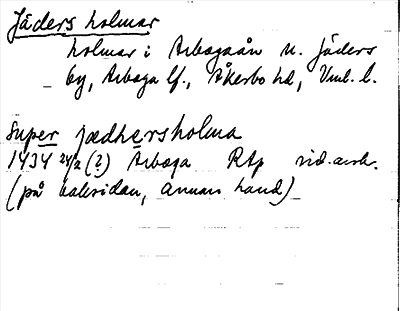 Jäders holmar
holmar i Arbogaån u. Jäders
by, Arboga lf., Åkerbo hd, Vml. l.
super jædhersholma
1434 24/2 (?) Arboga RAp
(på baksidan, annan hand)